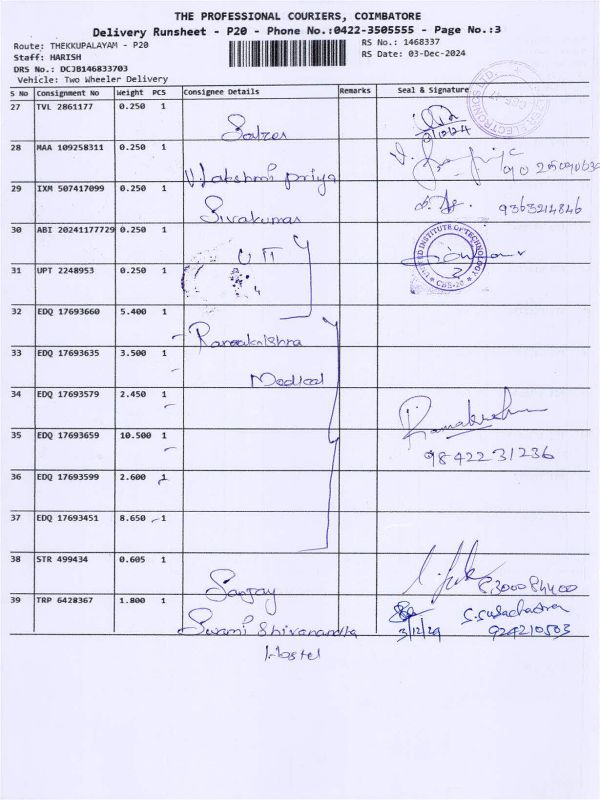 THE PROFESSIONAL COURIERS, COIMBATORE
Delivery Runsheet - P20 - Phone No.:0422-3505555 - Page No.:3
Route: THEKKUPALAYAM - P20
RS No.: 1468337
Staff: HARISH
RS Date: 03-Dec-2024
DRS No.: DCJB146833703
Vehicle: Two Wheeler Delivery
S No Consignment No Weight PCS Consignee Details Remarks Seal & Signature
27 TVL 2861177 0.250 1
3/12/24
28 MAA 109258311 0.250 1
V. Lakshmi priya
29 IXM 507417099 0.250 1
Sivakumar 9363214846
30 ABI 20241177729 0.250 1
UIT
INSTITUTE OF TECHNOLOGY
CBE-20
31 UPT 2248953 0.250 1
32 EDQ 17693660 5.400 1
Ramakrishna
33 EDQ 17693635 3.500 1
Medical
34 EDQ 17693579 2.450 1
35 EDQ 17693659 10.500 1
98422 31236
36 EDQ 17693599 2.600 1
37 EDQ 17693451 8.650 1
38 STR 499434 0.605 1
Sanjay
39 TRP 6428367 1.800 1
Swami Shivanandha 3/12/24
Hostel